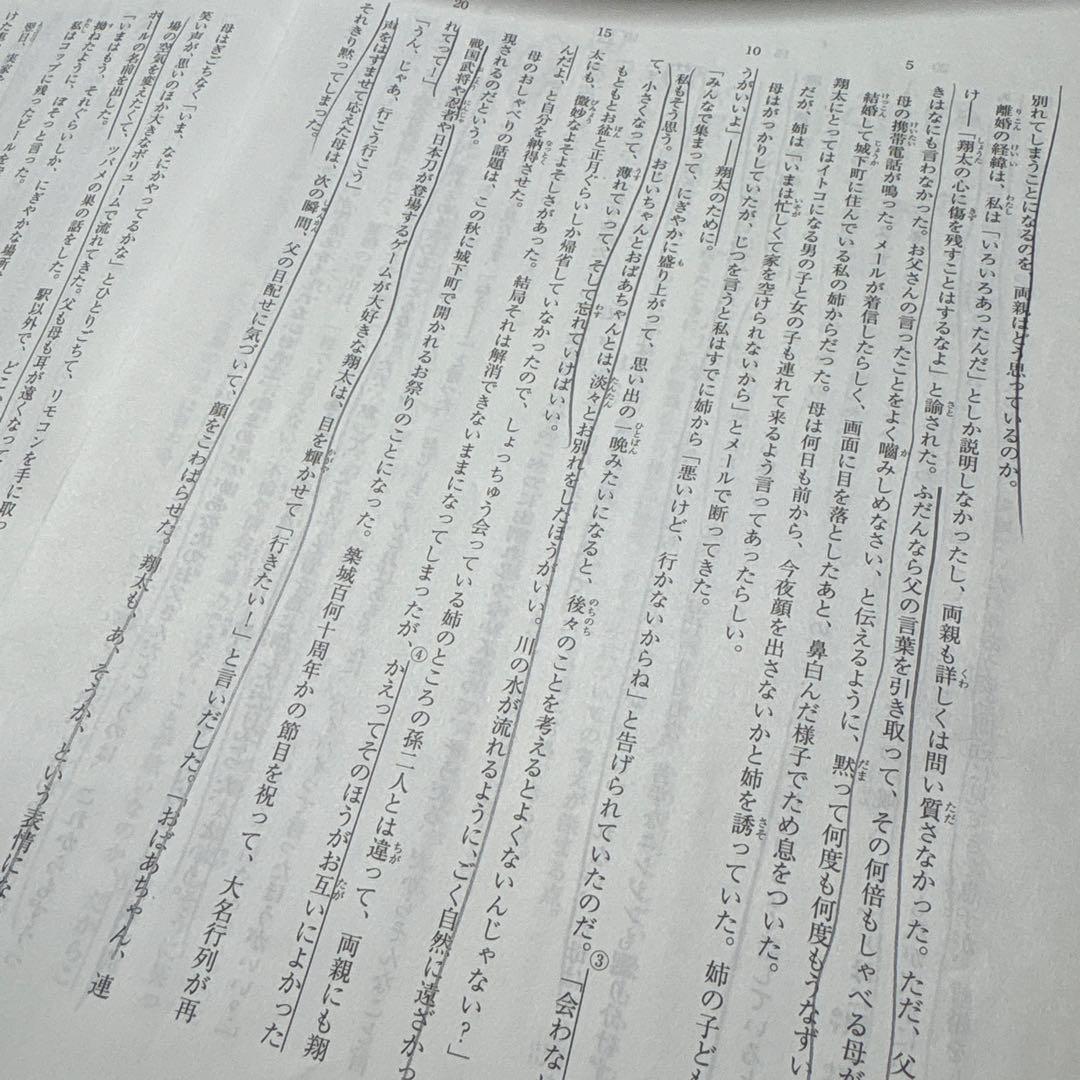 別れてしまうことになるのを、両親はどう思っているのか。
離婚の経緯は、私は「いろいろあったんだ」としか説明しなかったし、両親も詳しくは問い質さなかった。ただ、父
け――「翔太の心に傷を残すことはするなよ」と諭された。ふだんなら父の言葉を引き取って、その何倍もしゃべる母が
きはなにも言わなかった。お父さんの言ったことをよく嚙みしめなさい、と伝えるように、黙って何度も何度もうなずい
5 母の携帯電話が鳴った。メールが着信したらしく、画面に目を落としたあと、鼻白んだ様子でため息をついた。
結婚して城下町に住んでいる私の姉からだった。母は何日も前から、今夜顔を出さないかと姉を誘っていた。姉の子ども
翔太にとってはイトコになる男の子と女の子も連れて来るよう言ってあったらしい。
だが、姉は「いまは忙しくて家を空けられないから」とメールで断ってきた。
母はがっかりしていたが、じつを言うと私はすでに姉から「悪いけど、行かないからね」と告げられていたのだ。③「会わな
10 うがいいよ」――翔太のために。
「みんなで集まって、にぎやかに盛り上がって、思い出の一晩みたいになると、後々のことを考えるとよくないんじゃない？」
私もそう思う。おじいちゃんとおばあちゃんとは、淡々とお別れをしたほうがいい。川の水が流れるように、ごく自然に遠ざかっ
て、小さくなって、薄れていって、そして忘れていけばいい。
もともとお盆と正月ぐらいしか帰省していなかったので、しょっちゅう会っている姉のところの孫二人とは違って、両親にも翔
15 太にも、微妙なよそよそしさがあった。結局それは解消できないままになってしまったが、④かえってそのほうがお互いによかった
んだよ、と自分を納得させた。
母のおしゃべりの話題は、この秋に城下町で開かれるお祭りのことになった。築城百何十周年かの節目を祝って、大名行列が再
現されるのだという。
戦国武将や忍者や日本刀が登場するゲームが大好きな翔太は、目を輝かせて「行きたい！」と言いだした。「おばあちゃん、連
20 れてって！」
「うん、じゃあ、行こう行こう」
声をはずませて応えた母は、次の瞬間、父の目配せに気づいて、顔をこわばらせた。翔太も、あ、そうか、という表情にな
それきり黙ってしまった。
母はぎごちなく「いま、なにかやってるかな」とひとりごちて、リモコンを手に取っ
笑い声が、思いのほか大きなボリュームで流れてきた。父も母も耳が遠くなって
場の空気を変えたくて、ツバメの巣の話をした。駅以外で、どこ
ボールの名前を出した。
「いまはもう、それぐらいしか、にぎやかな場所
拗ねたように、ぼそっと言った。
私はコップに残ったビールを
翌日、実家
けた